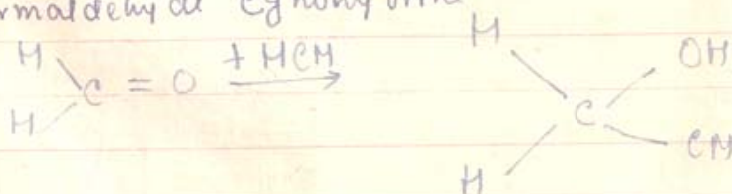 rmaldehyde Cyanohydrin
H H
C = O + HCN → C OH
H H CN